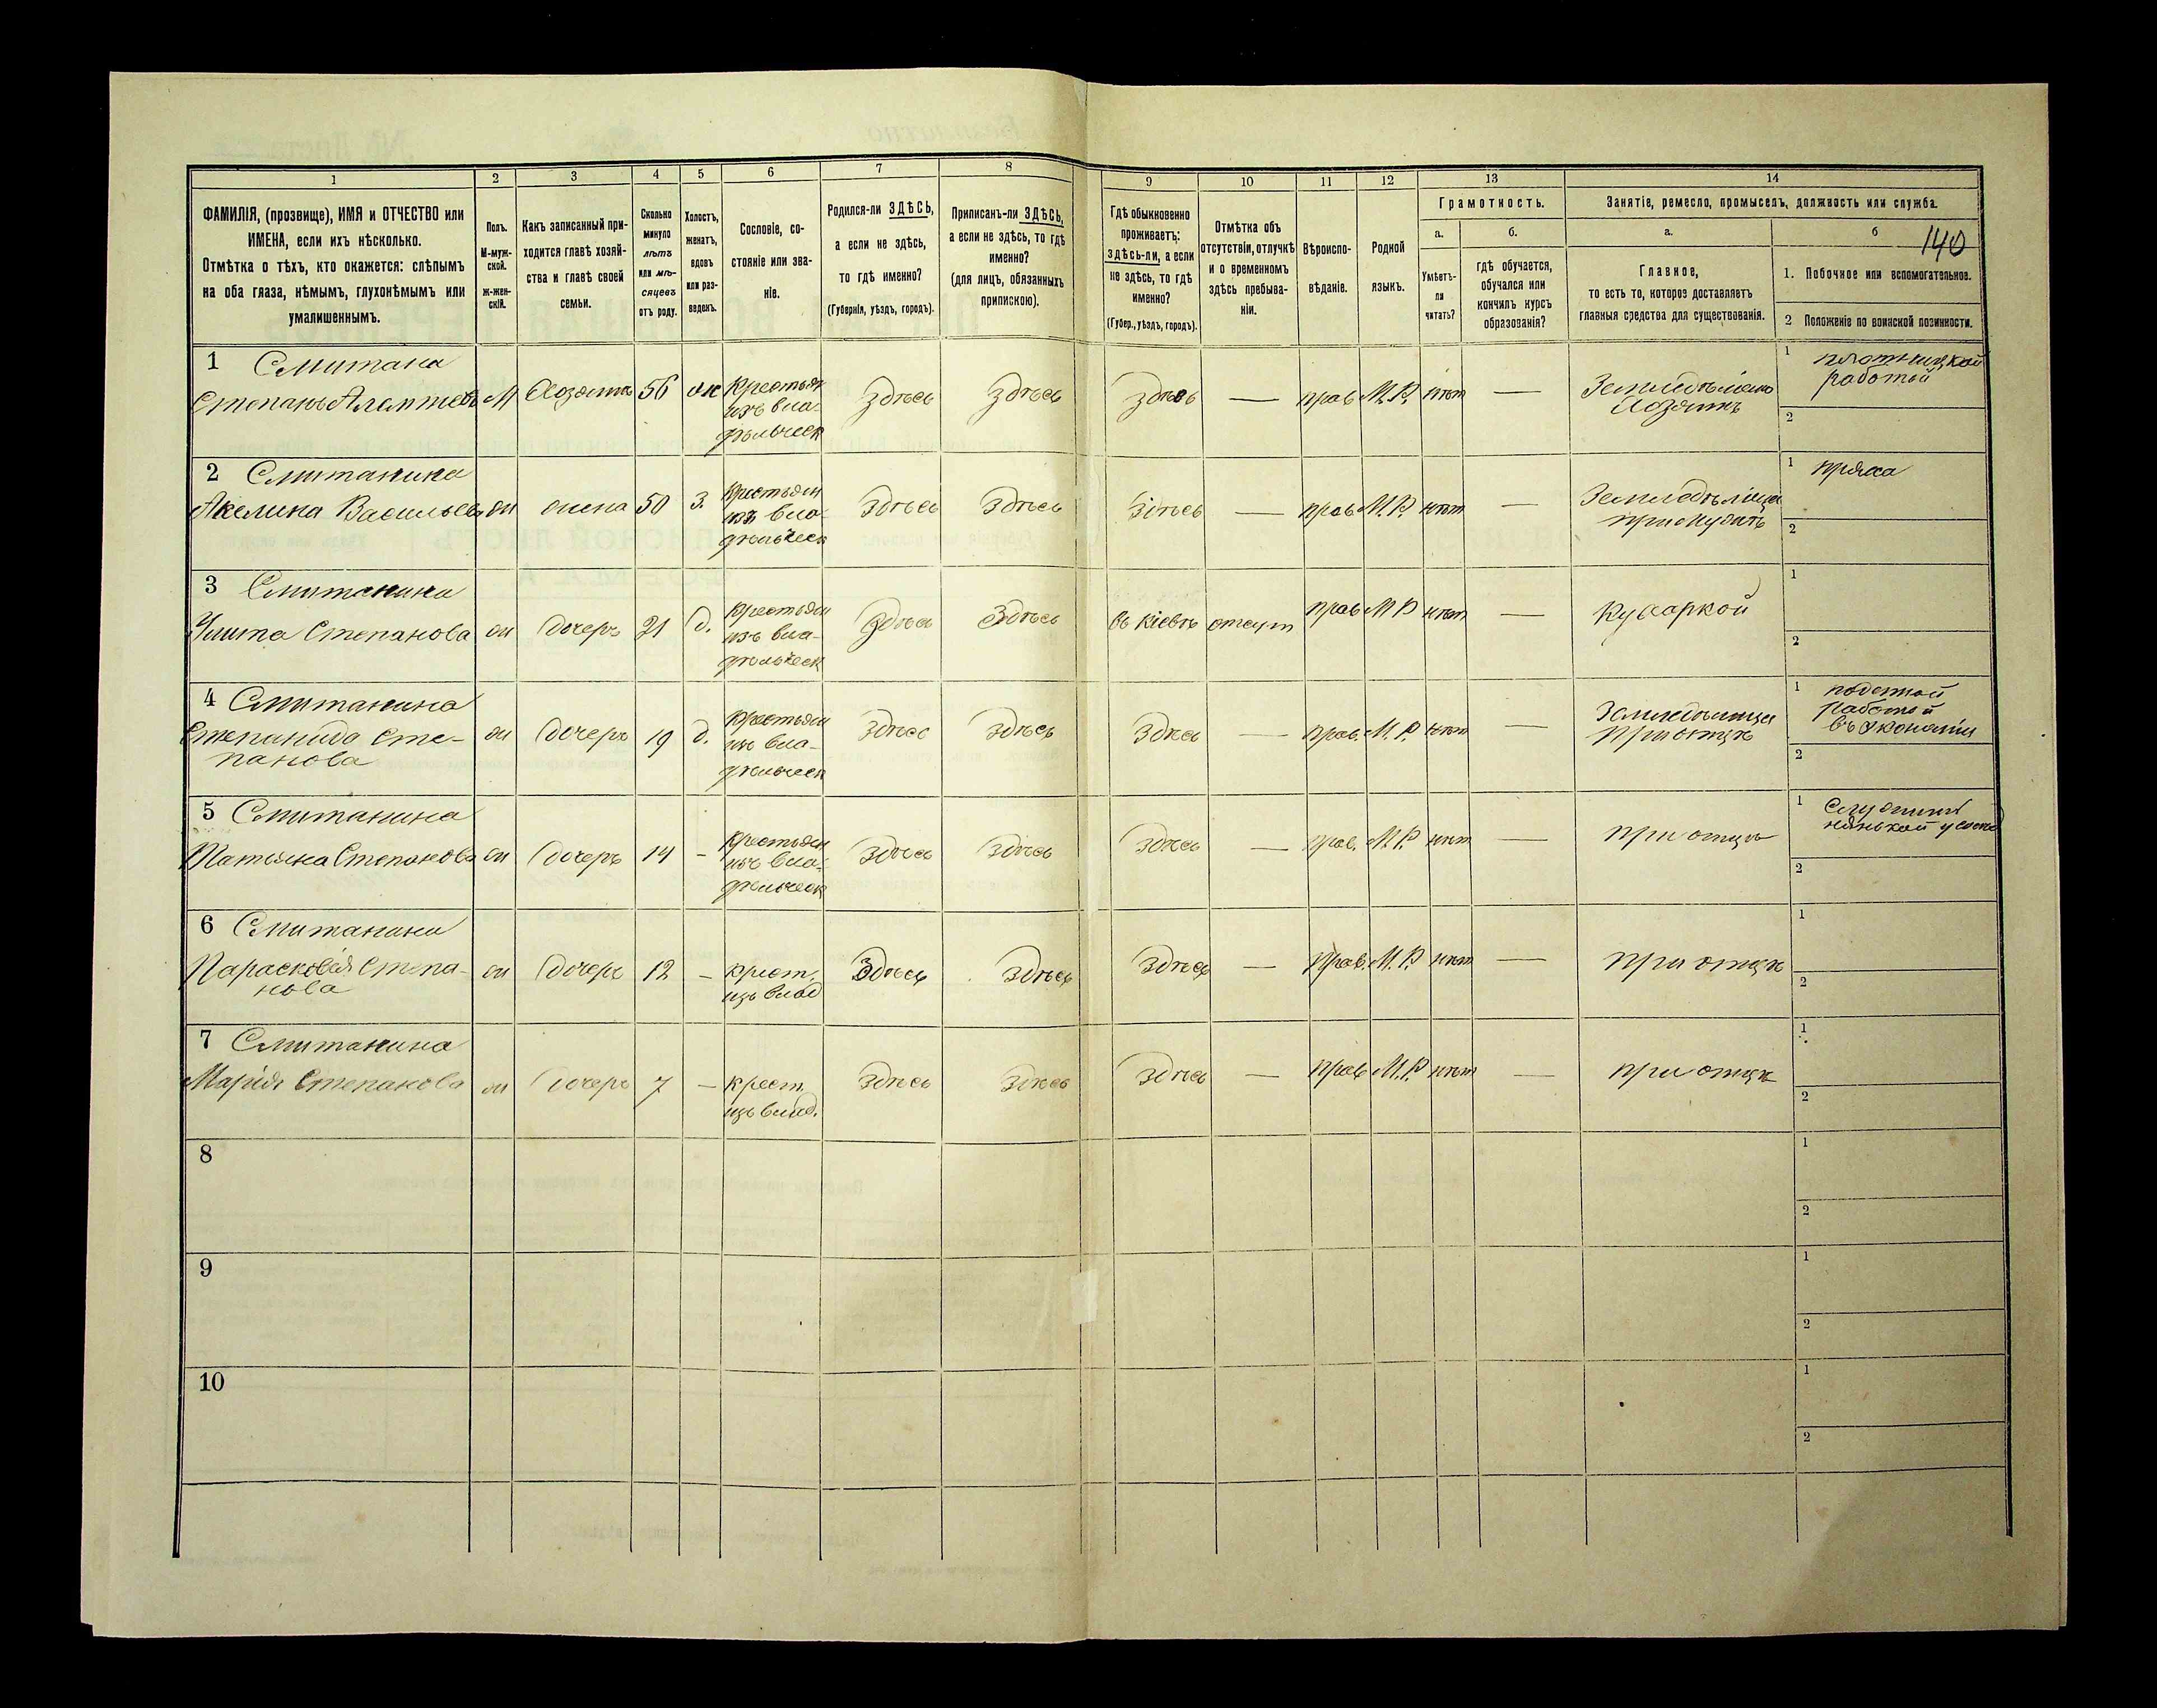 1 2 3 4 5 6 7 8 9 10 11 12 13 14
ФАМИЛІЯ, (прозвище), ИМЯ и ОТЧЕСТВО или
ИМЕНА, если ихъ нѣсколько.
Отмѣтка о тѣхъ, кто окажется: слѣпымъ
на оба глаза, нѣмымъ, глухонѣмымъ или
умалишеннымъ.
Полъ.
М-муж-
ской.
ж-жен-
скій.
Какъ записанный при-
ходится главѣ хозяй-
ства и главѣ своей
семьи.
Сколько
минуло
лѣтъ
или мѣ-
сяцевъ
отъ роду.
Холостъ,
женатъ,
вдовъ
или раз-
веденъ.
Сословіе, со-
стояніе или зва-
ніе.
Родился-ли ЗДѢСЬ,
а если не здѣсь,
то гдѣ именно?
(Губернія, уѣздъ, городъ).
Приписанъ-ли ЗДѢСЬ,
а если не здѣсь, то гдѣ
именно?
(для лицъ, обязанныхъ
припискою).
Гдѣ обыкновенно
проживаетъ:
здѣсь-ли, а если
не здѣсь, то гдѣ
именно?
(Губер., уѣздъ, городъ).
Отмѣтка объ
отсутствіи, отлучкѣ
и о временномъ
здѣсь пребыва-
ніи.
Вѣроиспо-
вѣданіе.
Родной
языкъ.
Грамотность.
а.
Умѣетъ-
ли
читать?
б.
гдѣ обучается,
обучался или
кончилъ курсъ
образованія?
Занятіе, ремесло, промыселъ, должность или служба.
а.
Главное,
то есть то, которое доставляетъ
главныя средства для существованія.
б
140
1. Побочное или вспомогательное.
2 Положеніе по воинской повинности.
1 Смитана
Степанъ М Хозяинъ 56 ж Крестьян
изъ вла-
дѣльческ
здѣсь здѣсь здѣсь — прав М.Р. нѣтъ —
Хозяинъ
1 плотницкой
работой
2
2 Смитанина
Акелина Васильева ж жена 50 З. Крестьян
изъ вла-
дѣльческ
здѣсь здѣсь здѣсь — прав М.Р. нѣтъ —
при мужѣ
1 пряха
2
3 Смитанина
Улита Степанова ж дочерь 21 д. Крестьян
изъ вла-
дѣльческ
здѣсь здѣсь въ Кіевѣ отсут прав М.Р. нѣтъ —
Кухаркой
1
2
4 Смитанина
Степанида Сте-
панова
ж дочерь 19 д. Крестьян
изъ вла-
дѣльческ
здѣсь здѣсь здѣсь — прав. М.Р. нѣтъ —
при отцѣ
1 поденной
работой
въ экономіи
2
5 Смитанина
Татьяна Степанова ж дочерь 14 — Крестьян
изъ вла-
дѣльческ
здѣсь здѣсь здѣсь — прав. М.Р. нѣтъ —
при отцѣ
1 Служитъ
нянькой
2
6 Смитанина
Парасковія Степа-
нова
ж дочерь 12 — крест.
изъ влад
здѣсь здѣсь здѣсь — Прав. М.Р. нѣтъ —
при отцѣ
1
2
7 Смитанина
Марія Степанова ж дочерь 7 — крест
изъ влад.
здѣсь здѣсь здѣсь — Прав М.Р. нѣтъ —
при отцѣ
1
2
8
1
2
9
1
2
10
1
2